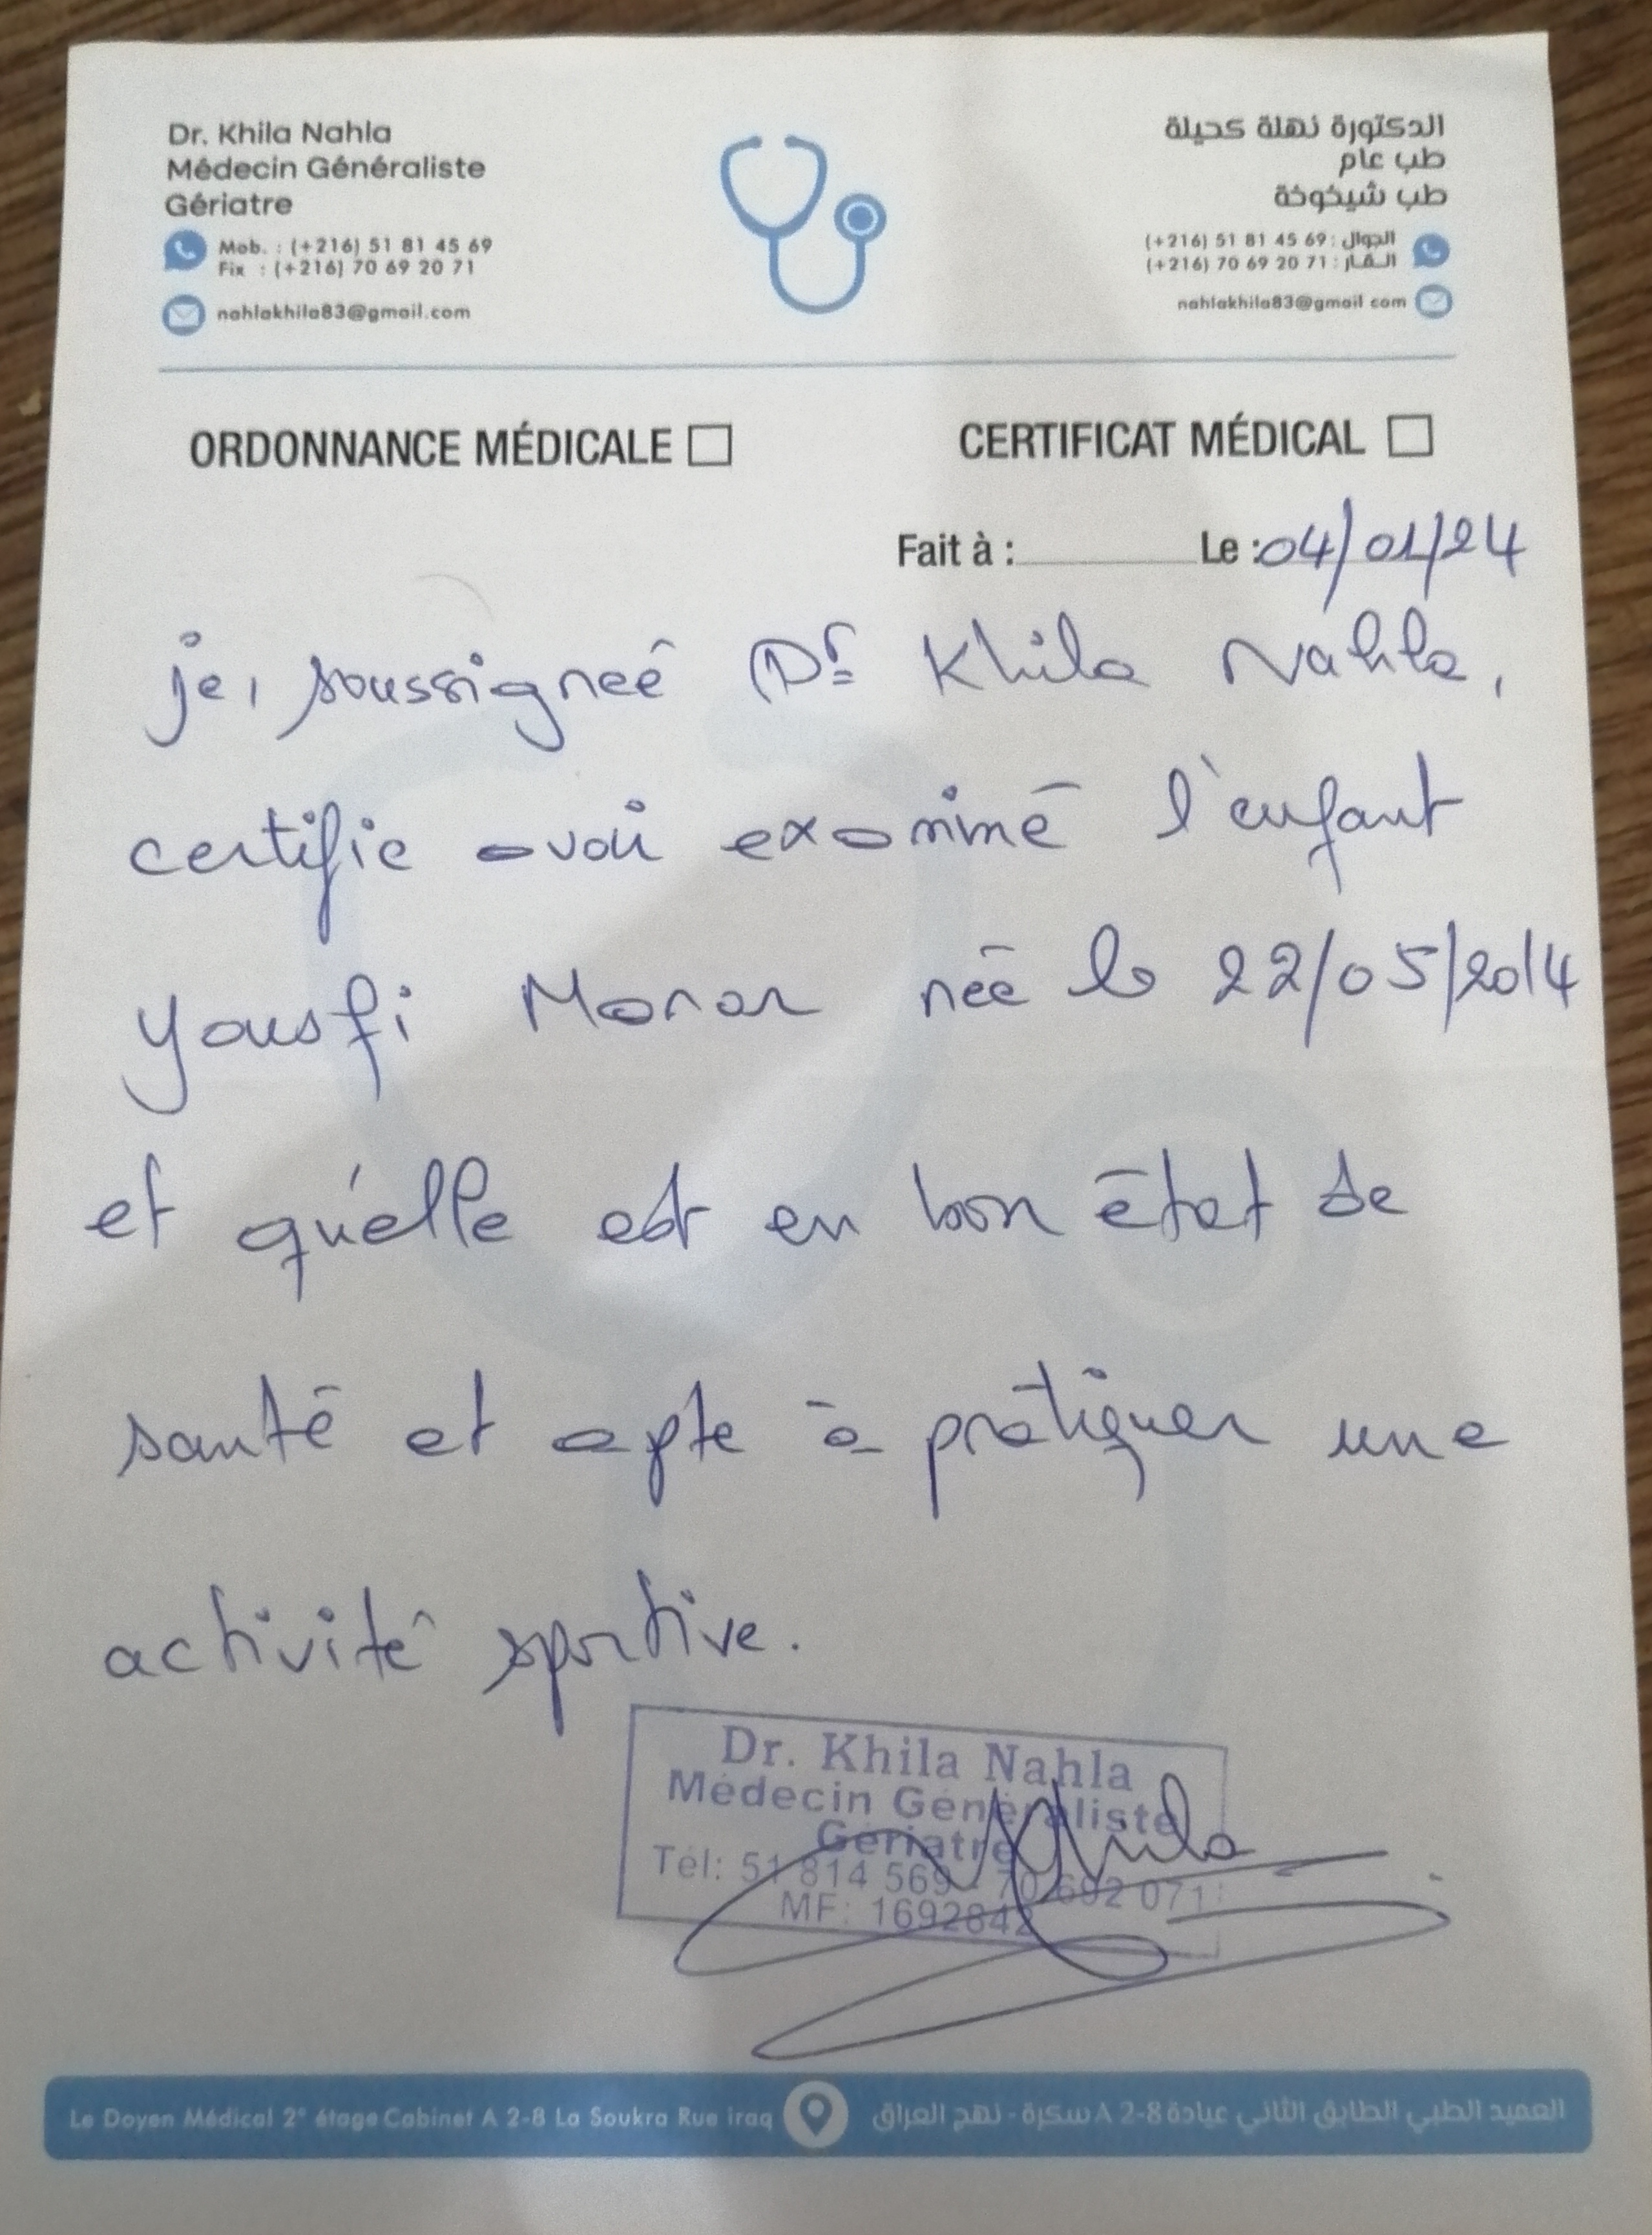 Dr. Khila Nahla
Médecin Généraliste
Gériatre
Mob. : (+216) 51 81 45 69
Fix : (+216) 70 69 20 71
nahlakhila83@gmail.com
الدكتورة نهلة كحيلة
طب عام
طب شيخوخة
الجوال : 69 45 81 51 (216+)
القـار : 71 20 69 70 (216+)
nahlakhila83@gmail com
ORDONNANCE MÉDICALE
CERTIFICAT MÉDICAL
Fait à : Le : 04/01/24
je, soussigneé Dr Khila Nahla,
certifie avoir examiné l'enfant
Yousfi née le 22/05/2014
et qu'elle est en bon état de
santé et apte à pratiquer une
activité sportive.
Dr. Khila Nahla
Médecin Généraliste
Gériatre
Tél: 51 814 569 - 70 692 071
MF: 1692842
Le Doyen Médical 2° étage Cabinet A 2-8 La Soukra Rue iraq
العميد الطبي الطابق الثاني عيادة A 2-8 سكرة - نهج العراق